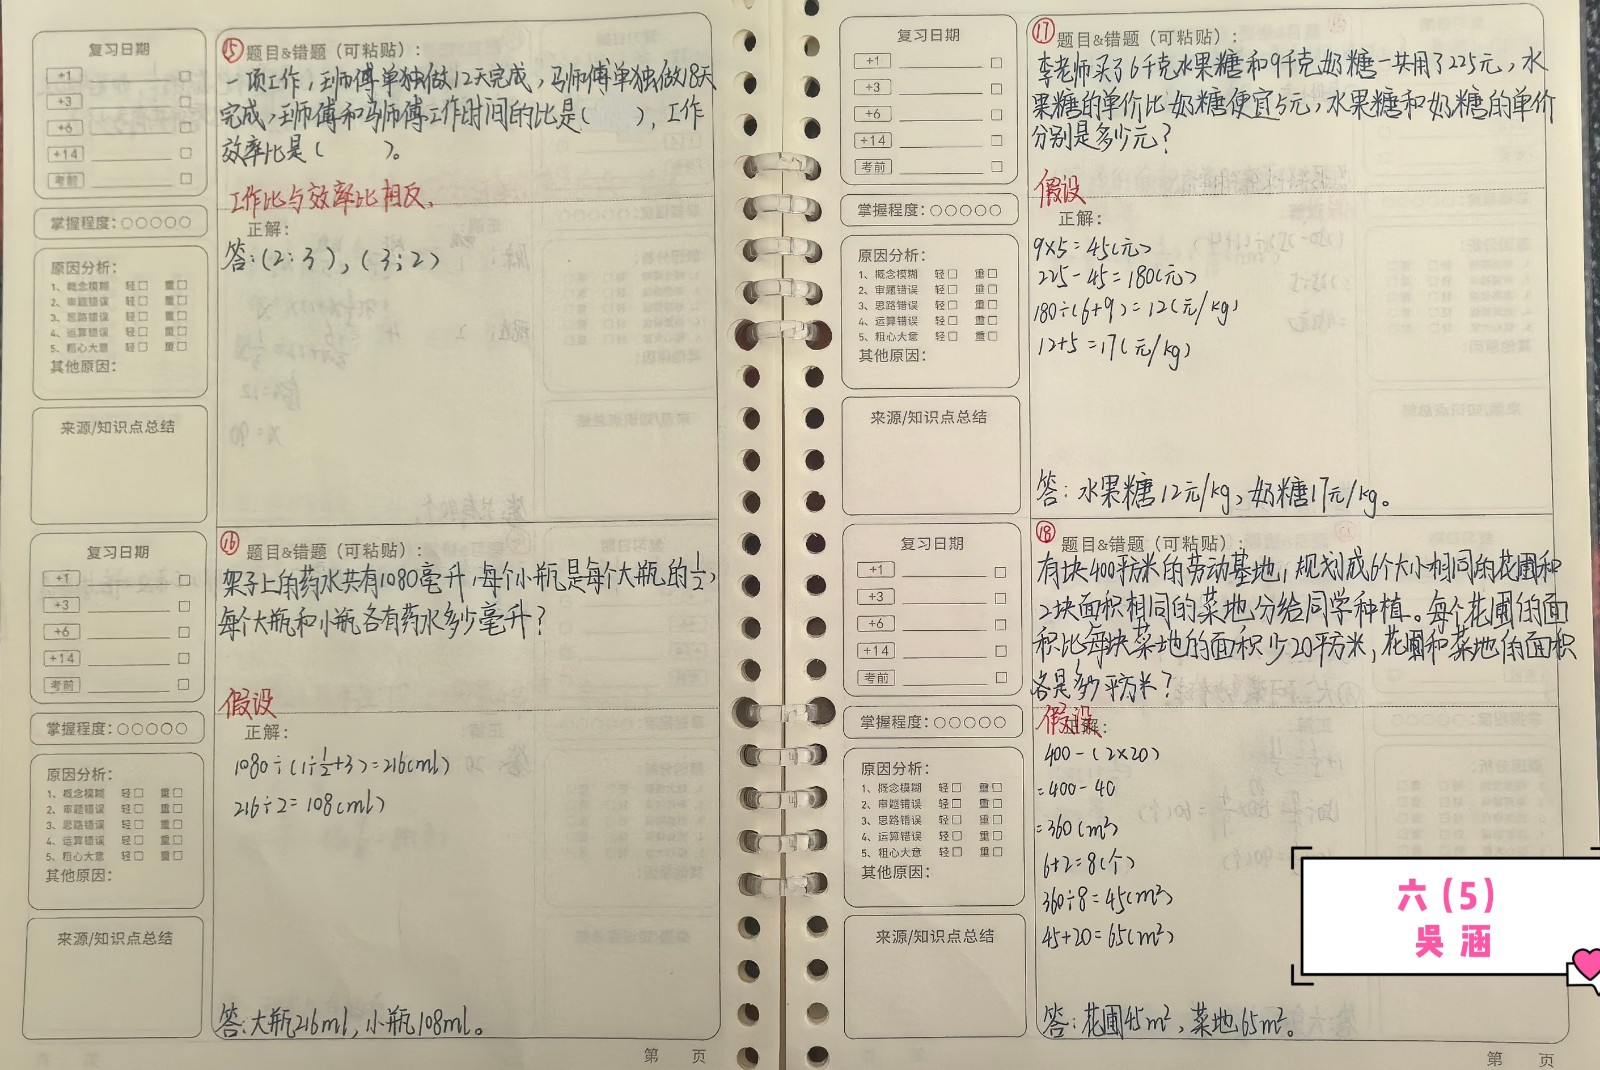 复习日期
+1
+3
+6
+14
考前
掌握程度：○○○○○
原因分析：
1、概念模糊 轻□ 重□
2、审题错误 轻□ 重□
3、思路错误 轻□ 重□
4、运算错误 轻□ 重□
5、粗心大意 轻□ 重□
其他原因：
来源/知识点总结
⑮ 题目&错题（可粘贴）：
一项工作，王师傅单独做12天完成，马师傅单独做18天
完成，王师傅和马师傅工作时间的比是（ ），工作
效率比是（ ）。
工作比与效率比相反。
正解：
答：(2：3)，(3：2)
复习日期
+1
+3
+6
+14
考前
掌握程度：○○○○○
原因分析：
1、概念模糊 轻□ 重□
2、审题错误 轻□ 重□
3、思路错误 轻□ 重□
4、运算错误 轻□ 重□
5、粗心大意 轻□ 重□
其他原因：
来源/知识点总结
⑯ 题目&错题（可粘贴）：
架子上的药水共有1080毫升，每个小瓶是每个大瓶的1/2，
每个大瓶和小瓶各有药水多少毫升？
假设
正解：
1080÷(1÷1/2+3)=216(ml)
216÷2=108(ml)
答：大瓶216ml，小瓶108ml。
第 页
复习日期
+1
+3
+6
+14
考前
掌握程度：○○○○○
原因分析：
1、概念模糊 轻□ 重□
2、审题错误 轻□ 重□
3、思路错误 轻□ 重□
4、运算错误 轻□ 重□
5、粗心大意 轻□ 重□
其他原因：
来源/知识点总结
⑰ 题目&错题（可粘贴）：
李老师买了6千克水果糖和9千克奶糖一共用了225元，水
果糖的单价比奶糖便宜5元，水果糖和奶糖的单价
分别是多少元？
假设
正解：
9×5=45(元)
225-45=180(元)
180÷(6+9)=12(元/kg)
12+5=17(元/kg)
答：水果糖12元/kg，奶糖17元/kg。
复习日期
+1
+3
+6
+14
考前
掌握程度：○○○○○
原因分析：
1、概念模糊 轻□ 重□
2、审题错误 轻□ 重□
3、思路错误 轻□ 重□
4、运算错误 轻□ 重□
5、粗心大意 轻□ 重□
其他原因：
来源/知识点总结
⑱ 题目&错题（可粘贴）：
有块400平方米的劳动基地，规划成6个大小相同的花圃和
2块面积相同的菜地分给同学种植。每个花圃的面
积比每块菜地的面积少20平方米，花圃和菜地的面积
各是多少平方米？
假设
正解：
400-(2×20)
=400-40
=360(m²)
6+2=8(个)
360÷8=45(m²)
45+20=65(m²)
答：花圃45m²，菜地65m²。
第 页
六(5)
吴涵